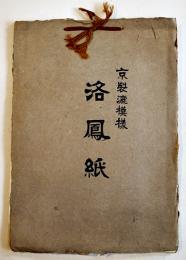 京製漉模様
洛鳳紙